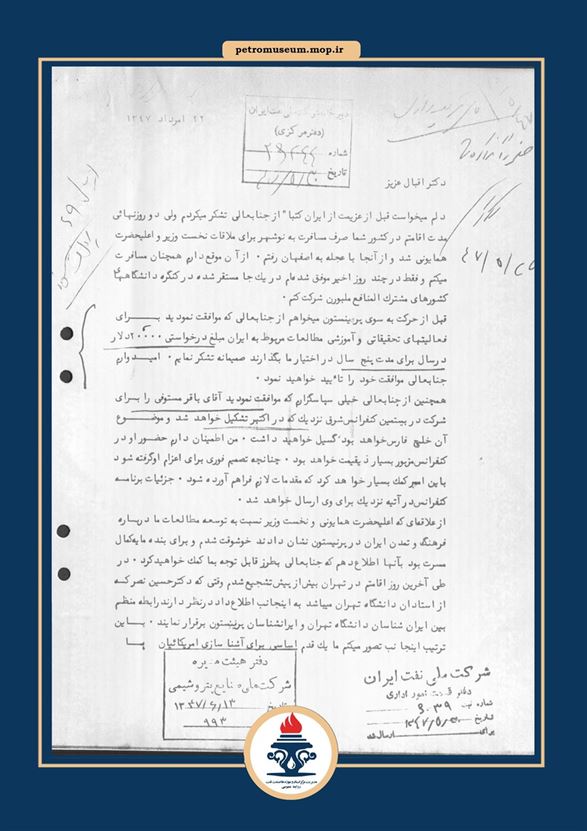 petromuseum.mop.ir
(دفتر مرکزی)
شماره
تاریخ
۲۲ امرداد ۱۳۴۷
دکتر اقبال عزیز
دلم میخواست قبل از عزیمت از ایران کتبا" از جنابعالی تشکر میکردم ولی دو روز نهائی
مدت اقامتم در کشور شما صرف مسافرت به نوشهر برای ملاقات نخست وزیر و اعلیحضرت
همایونی شد و از آنجا با عجله به اصفهان رفتم . از آن موقع دارم همچنان مسافرت
میکنم و فقط در چند روز اخیر موفق شده‌ام در یک جا مستقر شده در کنگره دانشگاههای
کشورهای مشترک المنافع ملبورن شرکت کنم .
قبل از حرکت به سوی پرینستون میخواهم از جنابعالی که موافقت نمودید برای
فعالیتهای تحقیقاتی و آموزشی مطالعات مربوط به ایران مبلغ درخواستی ۲۰۰۰۰ دلار
در سال برای مدت پنج سال در اختیار ما بگذارند صمیمانه تشکر نمایم . امیدوارم
جنابعالی موافقت خود را تأیید خواهید نمود .
همچنین از جنابعالی خیلی سپاسگزارم که موافقت نمودید آقای باقر مستوفی را برای
شرکت در بیستمین کنفرانس شرق نزدیک که در اکتبر تشکیل خواهد شد و موضوع
آن خلیج فارس خواهد بود گسیل خواهید داشت . من اطمینان دارم حضور او در
کنفرانس مزبور بسیار ذیقیمت خواهد بود . چنانچه تصمیم فوری برای اعزام او گرفته شود
باین امر کمک بسیار خواهد کرد که مقدمات لازم فراهم آورده شود . جزئیات برنامه
کنفرانس در آتیه نزدیک برای وی ارسال خواهد شد .
از علاقه‌ای که اعلیحضرت همایونی و نخست وزیر نسبت به توسعه مطالعات ما درباره
فرهنگ و تمدن ایران در پرینستون نشان دادند خوشوقت شدم و برای بنده مایه کمال
مسرت بود بآنها اطلاع دهم که جنابعالی بطرز قابل توجه بما کمک خواهید کرد . در
طی آخرین روز اقامتم در تهران بیش از پیش تشجیع شدم وقتی که دکتر حسین نصر که
از استادان دانشگاه تهران میباشد به اینجانب اطلاع داد در نظر دارند رابطه منظم
بین ایران شناسان دانشگاه تهران و ایرانشناسان پرینستون برقرار نمایند . باین
ترتیب اینجانب تصور میکنم ما یک قدم اساسی برای آشنا سازی امریکائیان با
دفتر هیئت مدیره
شرکت ملی صنایع پتروشیمی
تاریخ ۱۳۴۷/۶/۱۳
۹۹۳
شرکت ملی نفت ایران
دفتر قسمت امور اداری
شماره ثبت
تاریخ